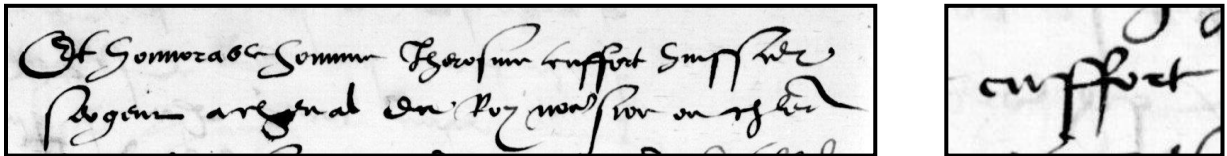 Et honnorable homme Jherosme cuffort huissier
sergent a cheval du Roy notre sire ou ch
cuffort